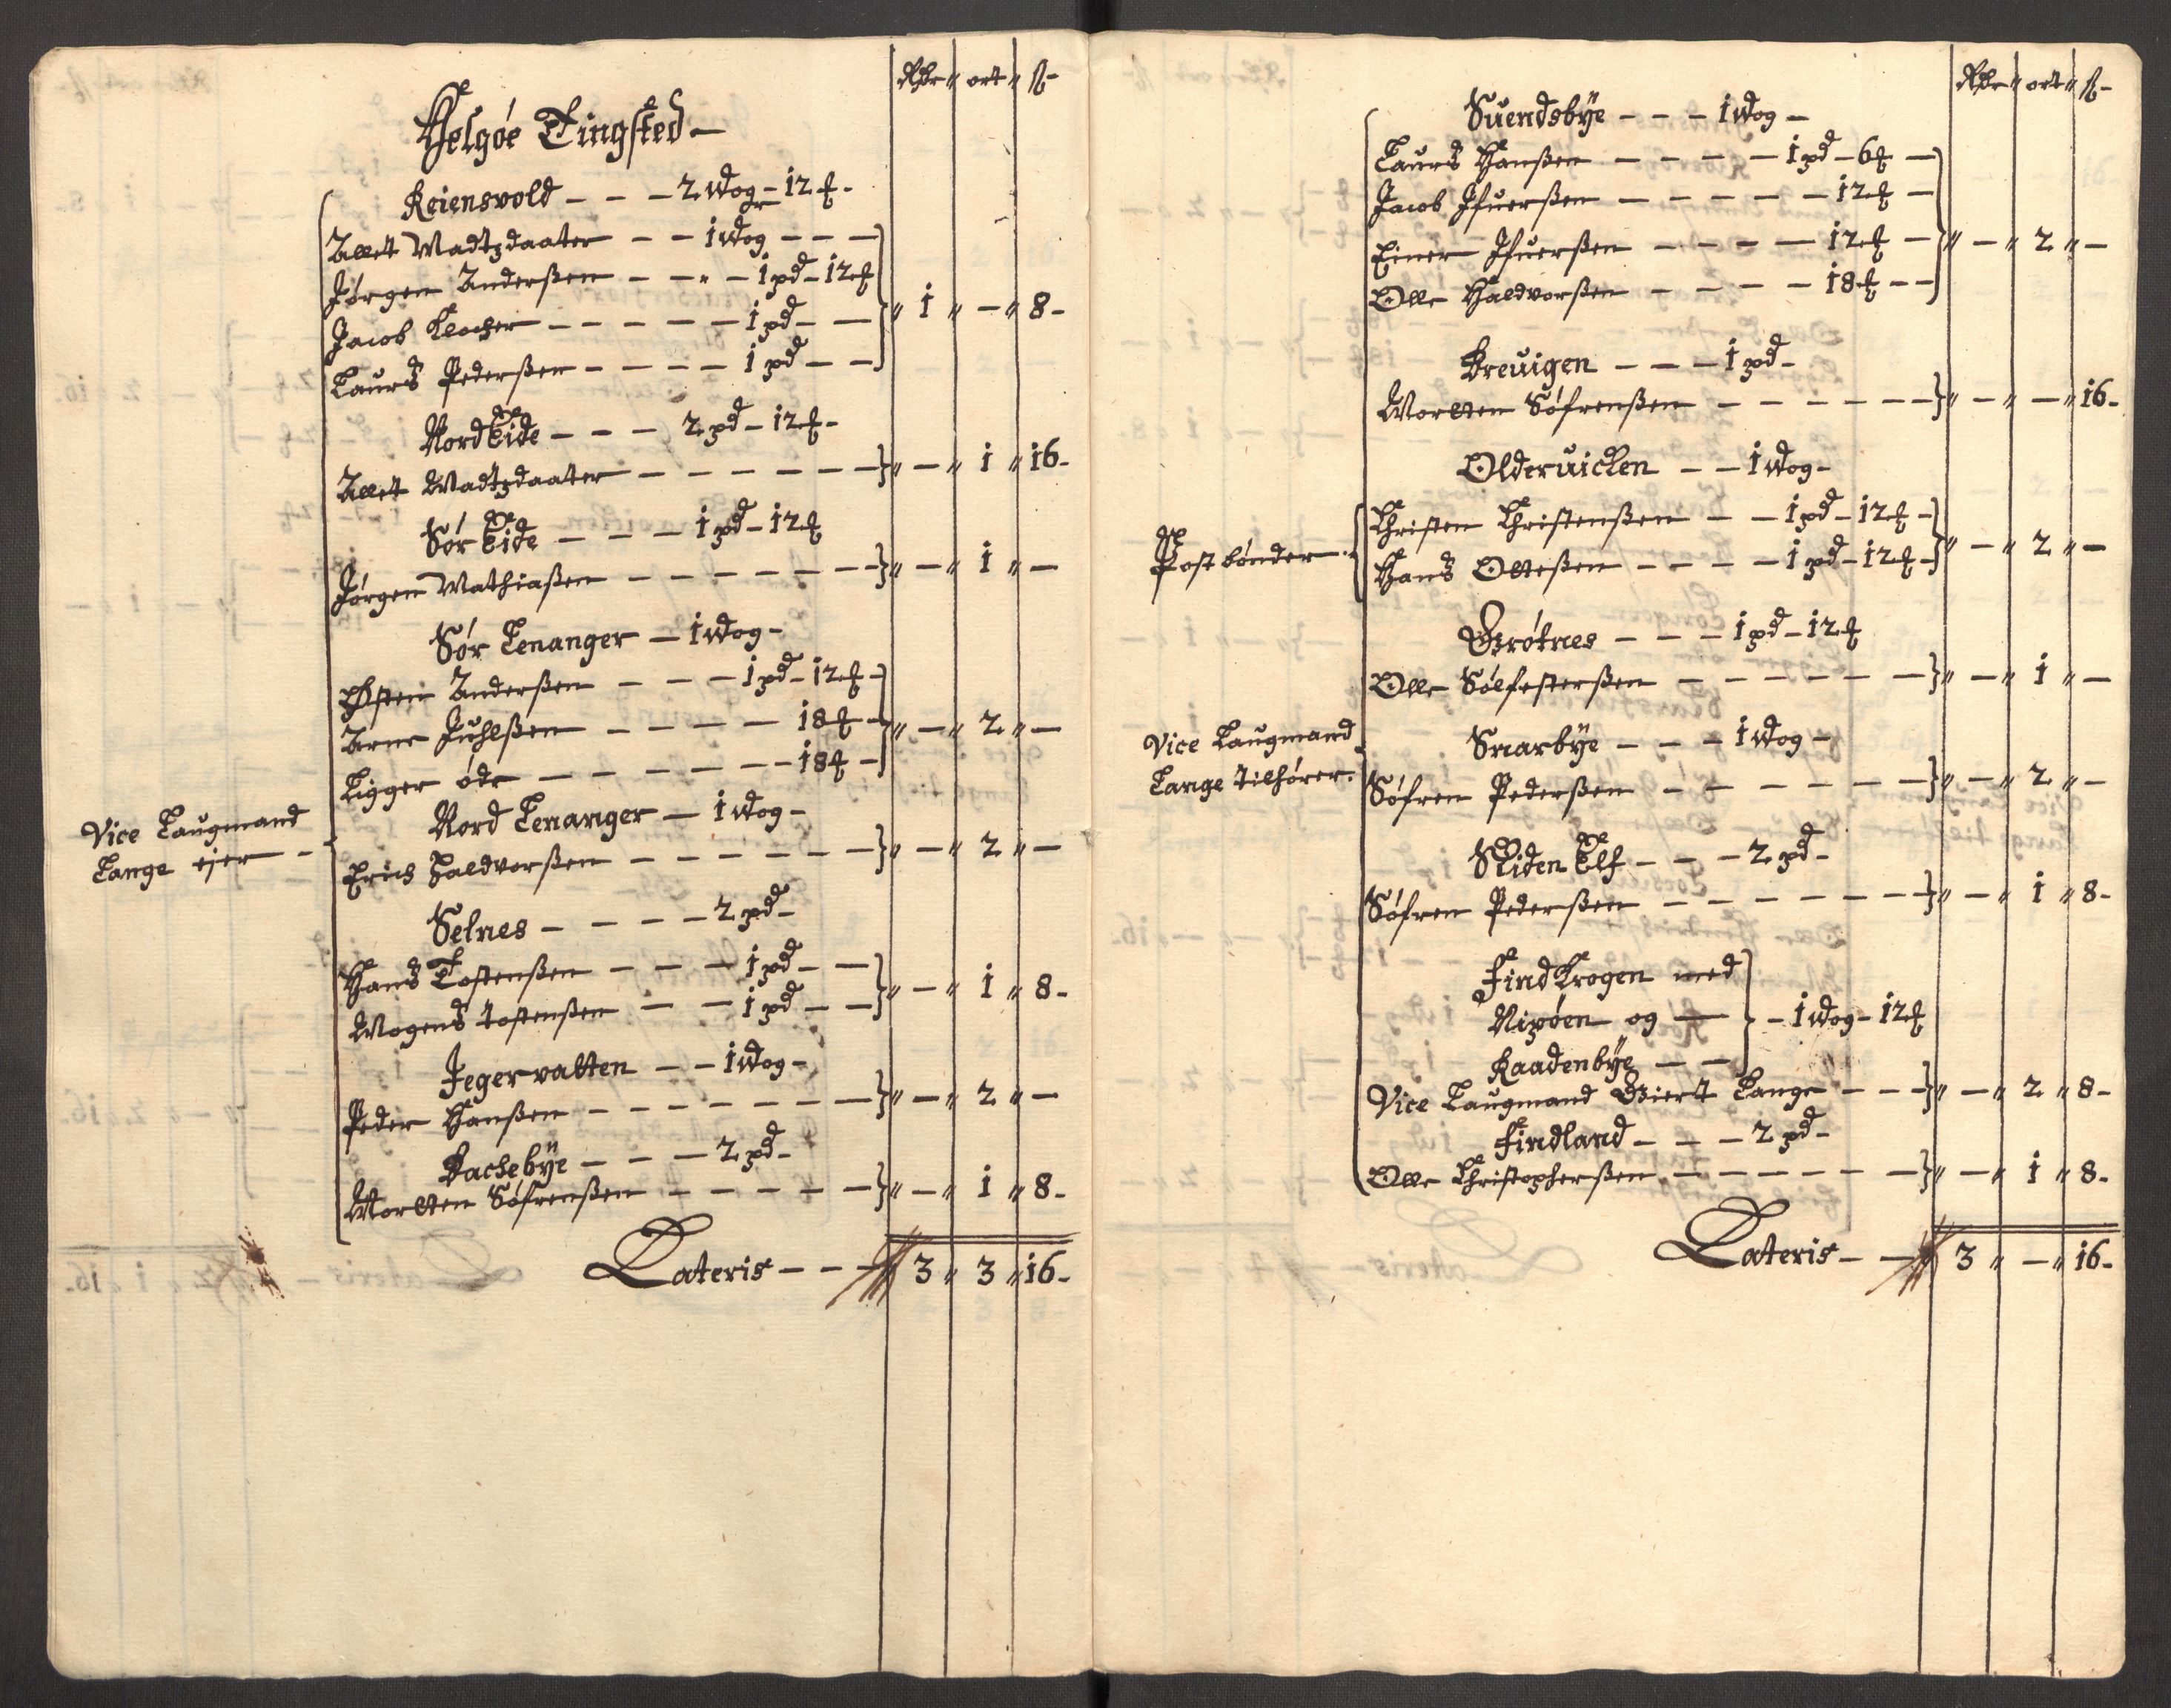 Rdr " ort " ß -
Helgøe Tingsted -
Reiensvold - - - 2 wog - 12 ℔ -
Allet Madtzdaater - - 1 wog - - -
Jørgen Anderßen - - - 1 pd - 12 ℔
Jacob Klocher - - - - - 1 pd - -
" 1 " - " 8 -
Laurs Pederßen - - - - 1 pd - -
Nord Eide - - - 2 pd - 12 ℔ -
Allet Madtzdaater - - - - - - " - " 1 " 16 -
Sør Eide - - - 1 pd - 12 ℔
Jørgen Mathiaßen - - - - - - - " - " 1 " -
Sør Lenanger - 1 wog -
Østen Anderßen - - - 1 pd - 12 ℔ -
Arne Juhlßen - - - - - 18 ℔ - " - " 2 " -
Ligger øde - - - - - - - 18 ℔ -
Nord Lenanger - 1 wog -
Vice Laugmand
Lange ejer - -
Erich Haldvorßen - - - - - - " - " 2 " -
Selnes - - - - 2 pd -
Hans Tostenßen - - - 1 pd - -
" - " 1 " 8 -
Mogens Tostenßen - - 1 pd - -
Jegervatten - - 1 wog -
Peder Hanßen - - - - - - - " - " 2 " -
Bachebÿe - - - 2 pd -
Morten Søfrenßen - - - - - " - " 1 " 8 -
Lateris - - - 3 " 3 " 16 -
Rdr " ort " ß -
Suendsbÿe - - - 1 wog -
Laurs Hanßen - - - - 1 pd - 6 ℔ -
Jacob Ifuerßen - - - - - 12 ℔ -
Einer Ifuerßen - - - - 12 ℔ - " - " 2 " -
Olle Haldvorßen - - - - 18 ℔ - -
Breuigen - - - 1 pd -
Morten Søfrenßen - - - - - - " - " - " 16 -
Olderuicken - - 1 wog -
Post bønder -
Christen Christenßen - - 1 pd - 12 ℔ -
" - " 2 " -
Hans Olleßen - - - - 1 pd - 12 ℔ -
Grøtnes - - - 1 pd - 12 ℔
Olle Sølfesterßen - - - - - - " - " 1 " -
Vice Laugmand
Lange tilhører.
Snarbÿe - - - 1 wog -
Søfren Pederßen - - - - - - " - " 2 " -
Skiden Elf - - - 2 pd -
Søfren Pederßen - - - - - - " - " 1 " 8 -
Find Krogen med
Nipøen og - - 1 wog - 12 ℔
Raadenbÿe - -
Vice Laugmand Giert Lange - - - " - " 2 " 8 -
Findland - - - 2 pd -
Olle Christopherßen - - - - - - " - " 1 " 8 -
Lateris - - 3 " - " 16 -